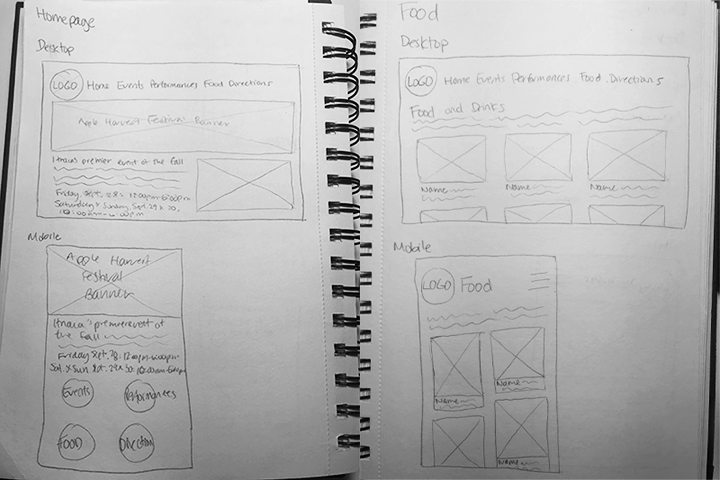 Homepage
Desktop
LOGO Home Events Performances Food Directions
Apple Harvest Festival Banner
Ithaca's premier event of the fall
Friday Sept. 28: 12:00pm-6:00pm
Saturday & Sunday Sept. 29 & 30:
10:00am-6:00pm
Mobile
Apple Harvest
Festival
Banner
Ithaca's premier event of
the fall
Friday Sept. 28: 12:00pm-6:00pm
Sat. & Sun Sept. 29 & 30: 10:00am-6:00pm
Events Performances
FOOD Direction
Food
Desktop
LOGO Home Events Performances Food Directions
Food and Drinks
Name Name Name
Mobile
LOGO Food
Name
Name
Name